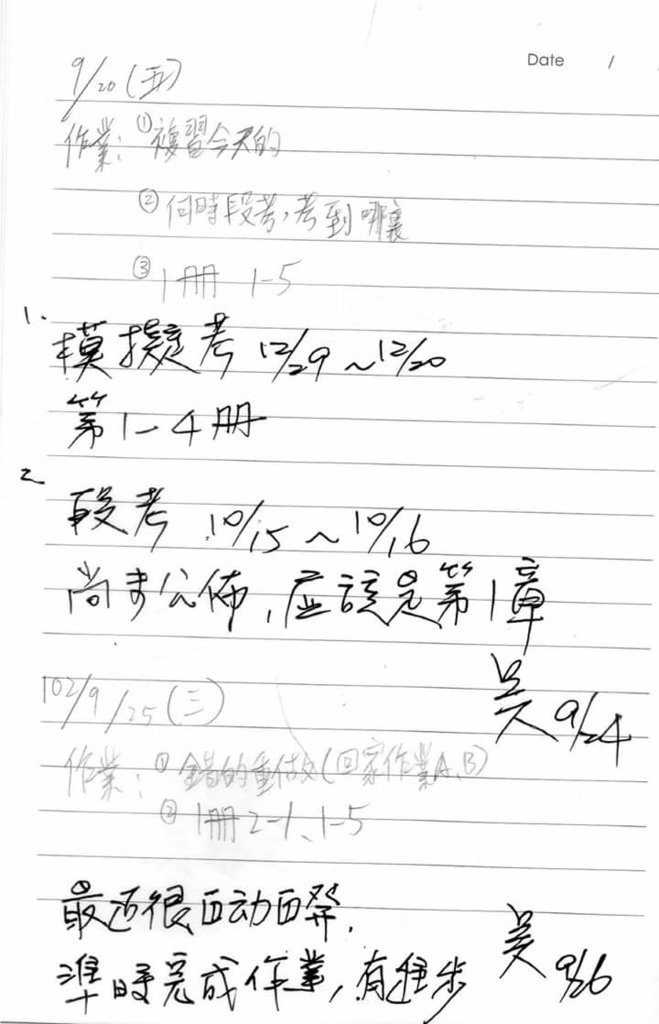 Date /
9/20(五)
作業:①複習今天的
②何時段考,考到哪裏
③1冊 1-5
1.
模擬考 12/29~12/20
第1-4冊
2
段考 10/15~10/16
尚未公佈,應該是第1章
吴 9/24
102/9/25(三)
作業:①錯的重做(回家作業A、B)
②1冊2-1、1-5
最近很自动自發.
準時完成作業,有進步
吴 9/26